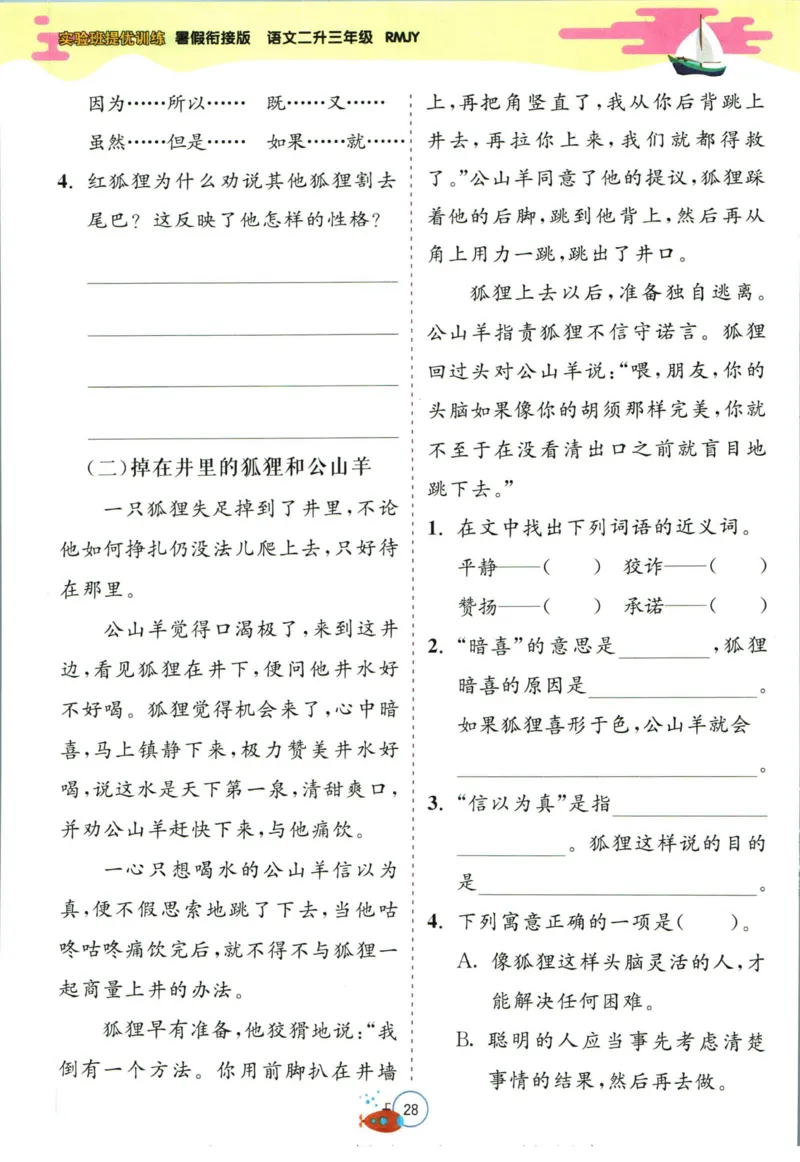 实验班提优训练 暑假衔接版 语文二升三年级 RMJY
因为……所以…… 既……又……
虽然……但是…… 如果……就……
4. 红狐狸为什么劝说其他狐狸割去
尾巴？这反映了他怎样的性格？
(二)掉在井里的狐狸和公山羊
一只狐狸失足掉到了井里，不论
他如何挣扎仍没法儿爬上去，只好待
在那里。
公山羊觉得口渴极了，来到这井
边，看见狐狸在井下，便问他井水好
不好喝。狐狸觉得机会来了，心中暗
喜，马上镇静下来，极力赞美井水好
喝，说这水是天下第一泉，清甜爽口，
并劝公山羊赶快下来，与他痛饮。
一心只想喝水的公山羊信以为
真，便不假思索地跳了下去，当他咕
咚咕咚痛饮完后，就不得不与狐狸一
起商量上井的办法。
狐狸早有准备，他狡猾地说：“我
倒有一个方法。你用前脚扒在井墙
上，再把角竖直了，我从你后背跳上
井去，再拉你上来，我们就都得救
了。”公山羊同意了他的提议，狐狸踩
着他的后脚，跳到他背上，然后再从
角上用力一跳，跳出了井口。
狐狸上去以后，准备独自逃离。
公山羊指责狐狸不信守诺言。狐狸
回过头对公山羊说：“喂，朋友，你的
头脑如果像你的胡须那样完美，你就
不至于在没看清出口之前就盲目地
跳下去。”
1. 在文中找出下列词语的近义词。
平静——( ) 狡诈——( )
赞扬——( ) 承诺——( )
2. “暗喜”的意思是________，狐狸
暗喜的原因是________________。
如果狐狸喜形于色，公山羊就会
____________________________。
3. “信以为真”是指______________
__________。狐狸这样说的目的
是__________________________。
4. 下列寓意正确的一项是( )。
A. 像狐狸这样头脑灵活的人，才
能解决任何困难。
B. 聪明的人应当事先考虑清楚
事情的结果，然后再去做。
28